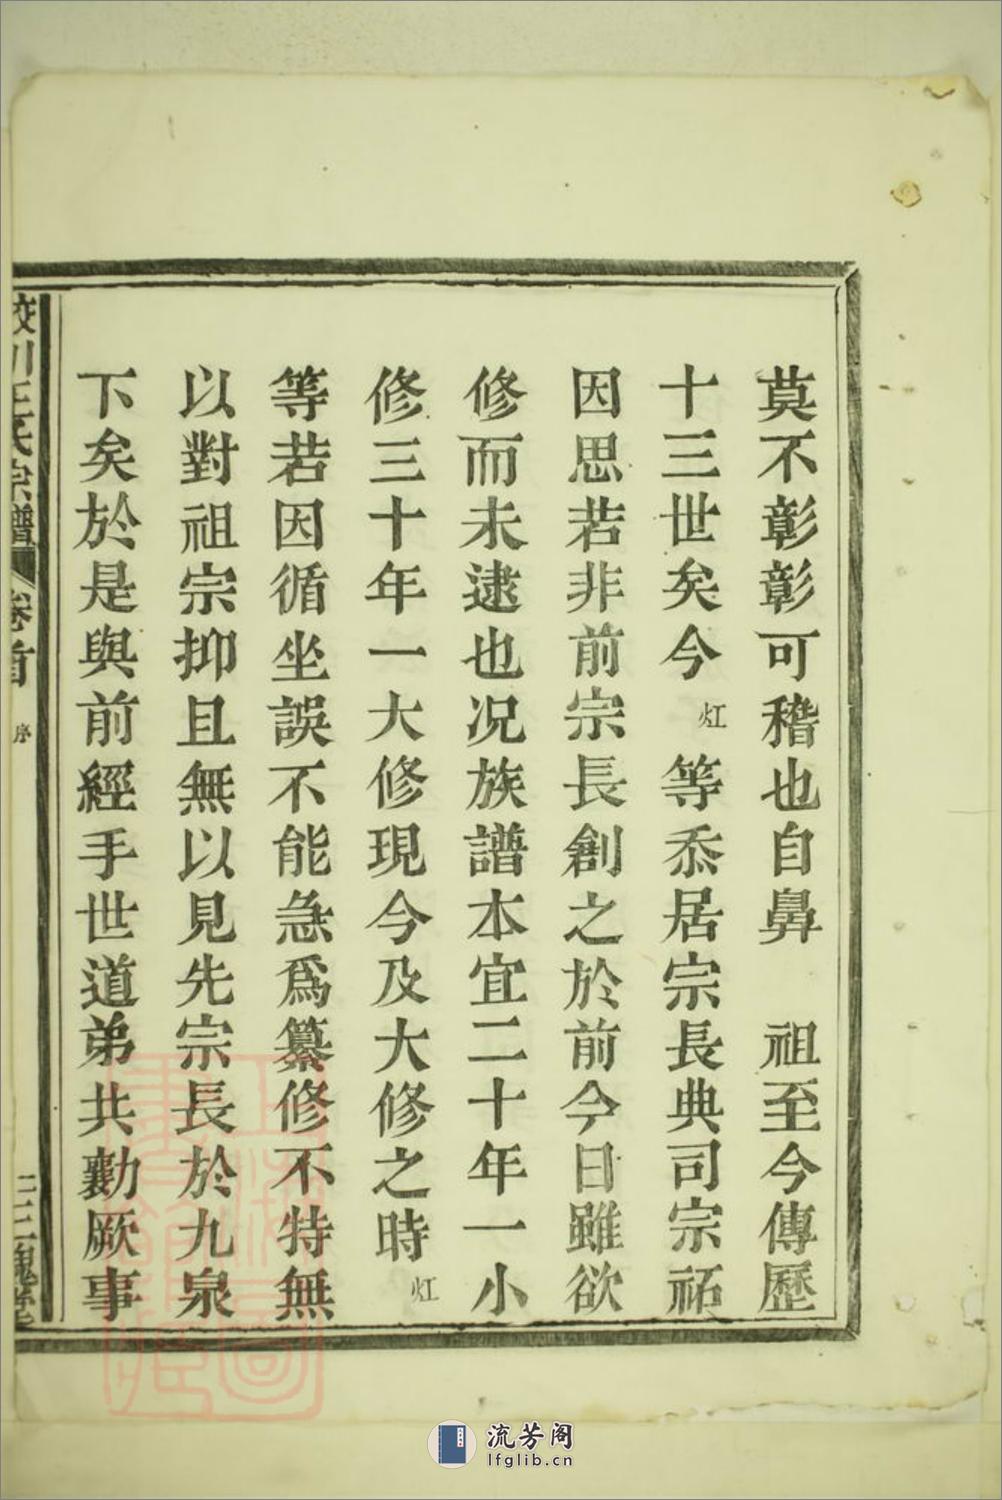 莫不彰彰可稽也自鼻　祖至今傳歷
十三世矣今灴等忝居宗長典司宗祏
因思若非前宗長創之於前今日雖欲
修而未逮也况族譜本宜二十年一小
修三十年一大修現今及大修之時灴
等若因循坐誤不能急爲纂修不特無
以對祖宗抑且無以見先宗長於九泉
下矣於是與前經手世道弟共勷厥事
川王氏宗譜 卷首 序 三槐堂
流芳阁
lfglib.cn